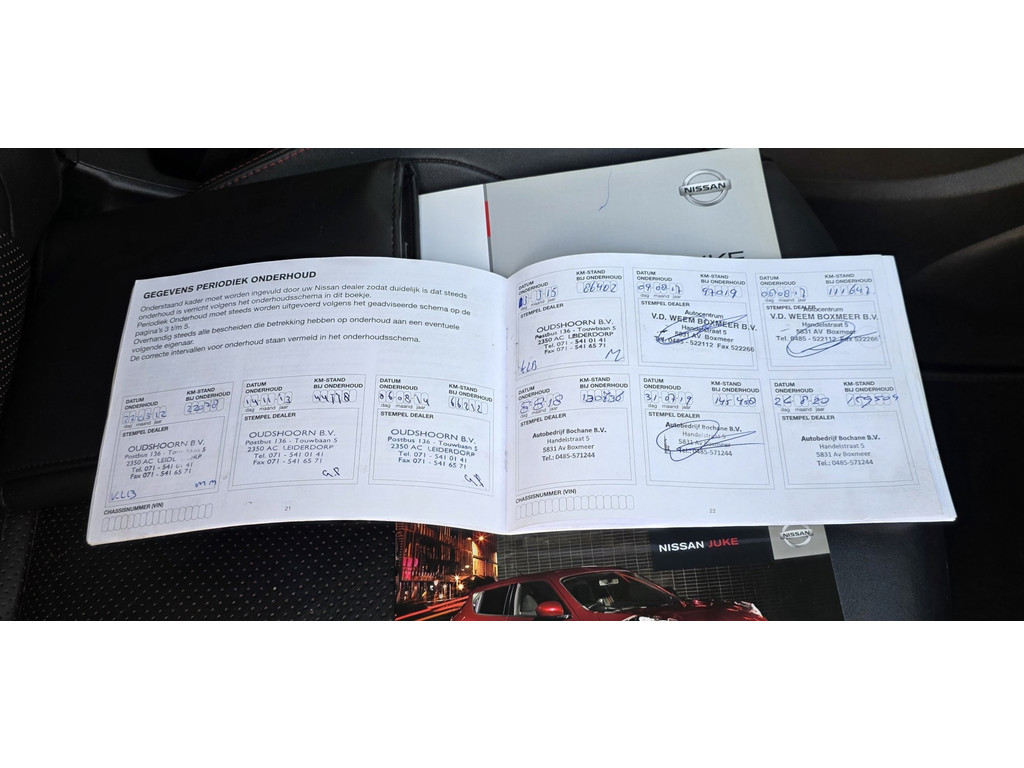 NISSAN
GEGEVENS PERIODIEK ONDERHOUD
Onderstaand kader moet worden ingevuld door uw Nissan dealer zodat duidelijk is dat steeds
onderhoud is verricht volgens het onderhoudsschema in dit boekje.
Periodiek Onderhoud moet steeds worden uitgevoerd volgens het geadviseerde schema op de
pagina's 3 t/m 5.
Overhandig steeds alle bescheiden die betrekking hebben op onderhoud aan een eventuele
volgende eigenaar.
De correcte intervallen voor onderhoud staan vermeld in het onderhoudsschema.
DATUM ONDERHOUD
KM-STAND BIJ ONDERHOUD
dag maand jaar
STEMPEL DEALER
OUDSHOORN B.V.
Postbus 136 - Touwbaan 5
2350 AC
Tel. 071 - 541 01 41
Fax 071 - 541 65 71
CHASSISNUMMER (VIN)
DATUM ONDERHOUD
14 11 13
KM-STAND BIJ ONDERHOUD
44778
dag maand jaar
STEMPEL DEALER
OUDSHOORN B.V.
Postbus 136 - Touwbaan 5
2350 AC LEIDERDORP
Tel. 071 - 541 01 41
Fax 071 - 541 65 71
DATUM ONDERHOUD
06 08 14
KM-STAND BIJ ONDERHOUD
66212
dag maand jaar
STEMPEL DEALER
OUDSHOORN B.V.
Postbus 136 - Touwbaan 5
2350 AC LEIDERDORP
Tel. 071 - 541 01 41
Fax 071 - 541 65 71
21
DATUM ONDERHOUD
KM-STAND BIJ ONDERHOUD
86402
dag maand jaar
STEMPEL DEALER
OUDSHOORN B.V.
Postbus 136 - Touwbaan 5
2350 AC LEIDERDORP
Tel. 071 - 541 01 41
Fax 071 - 541 65 71
DATUM ONDERHOUD
KM-STAND BIJ ONDERHOUD
97019
dag maand jaar
STEMPEL DEALER
Autocentrum
V.D. WEEM BOXMEER B.V.
Handelstraat 5
5831 AV Boxmeer
Tel. 0485 - 522112 Fax 522266
DATUM ONDERHOUD
KM-STAND BIJ ONDERHOUD
111647
dag maand jaar
STEMPEL DEALER
Autocentrum
V.D. WEEM BOXMEER B.V.
Handelstraat 5
5831 AV Boxmeer
Tel. 0485 - 522112 Fax 522266
DATUM ONDERHOUD
KM-STAND BIJ ONDERHOUD
dag maand jaar
STEMPEL DEALER
Autobedrijf Bochane B.V.
Handelstraat 5
5831 AV Boxmeer
Tel.: 0485-571244
CHASSISNUMMER (VIN)
DATUM ONDERHOUD
KM-STAND BIJ ONDERHOUD
dag maand jaar
STEMPEL DEALER
Autobedrijf Bochane B.V.
Handelstraat 5
5831 AV Boxmeer
Tel.: 0485-571244
DATUM ONDERHOUD
26 8 20
KM-STAND BIJ ONDERHOUD
dag maand jaar
STEMPEL DEALER
Autobedrijf Bochane B.V.
Handelstraat 5
5831 AV Boxmeer
Tel.: 0485-571244
22
NISSAN JUKE
NISSAN